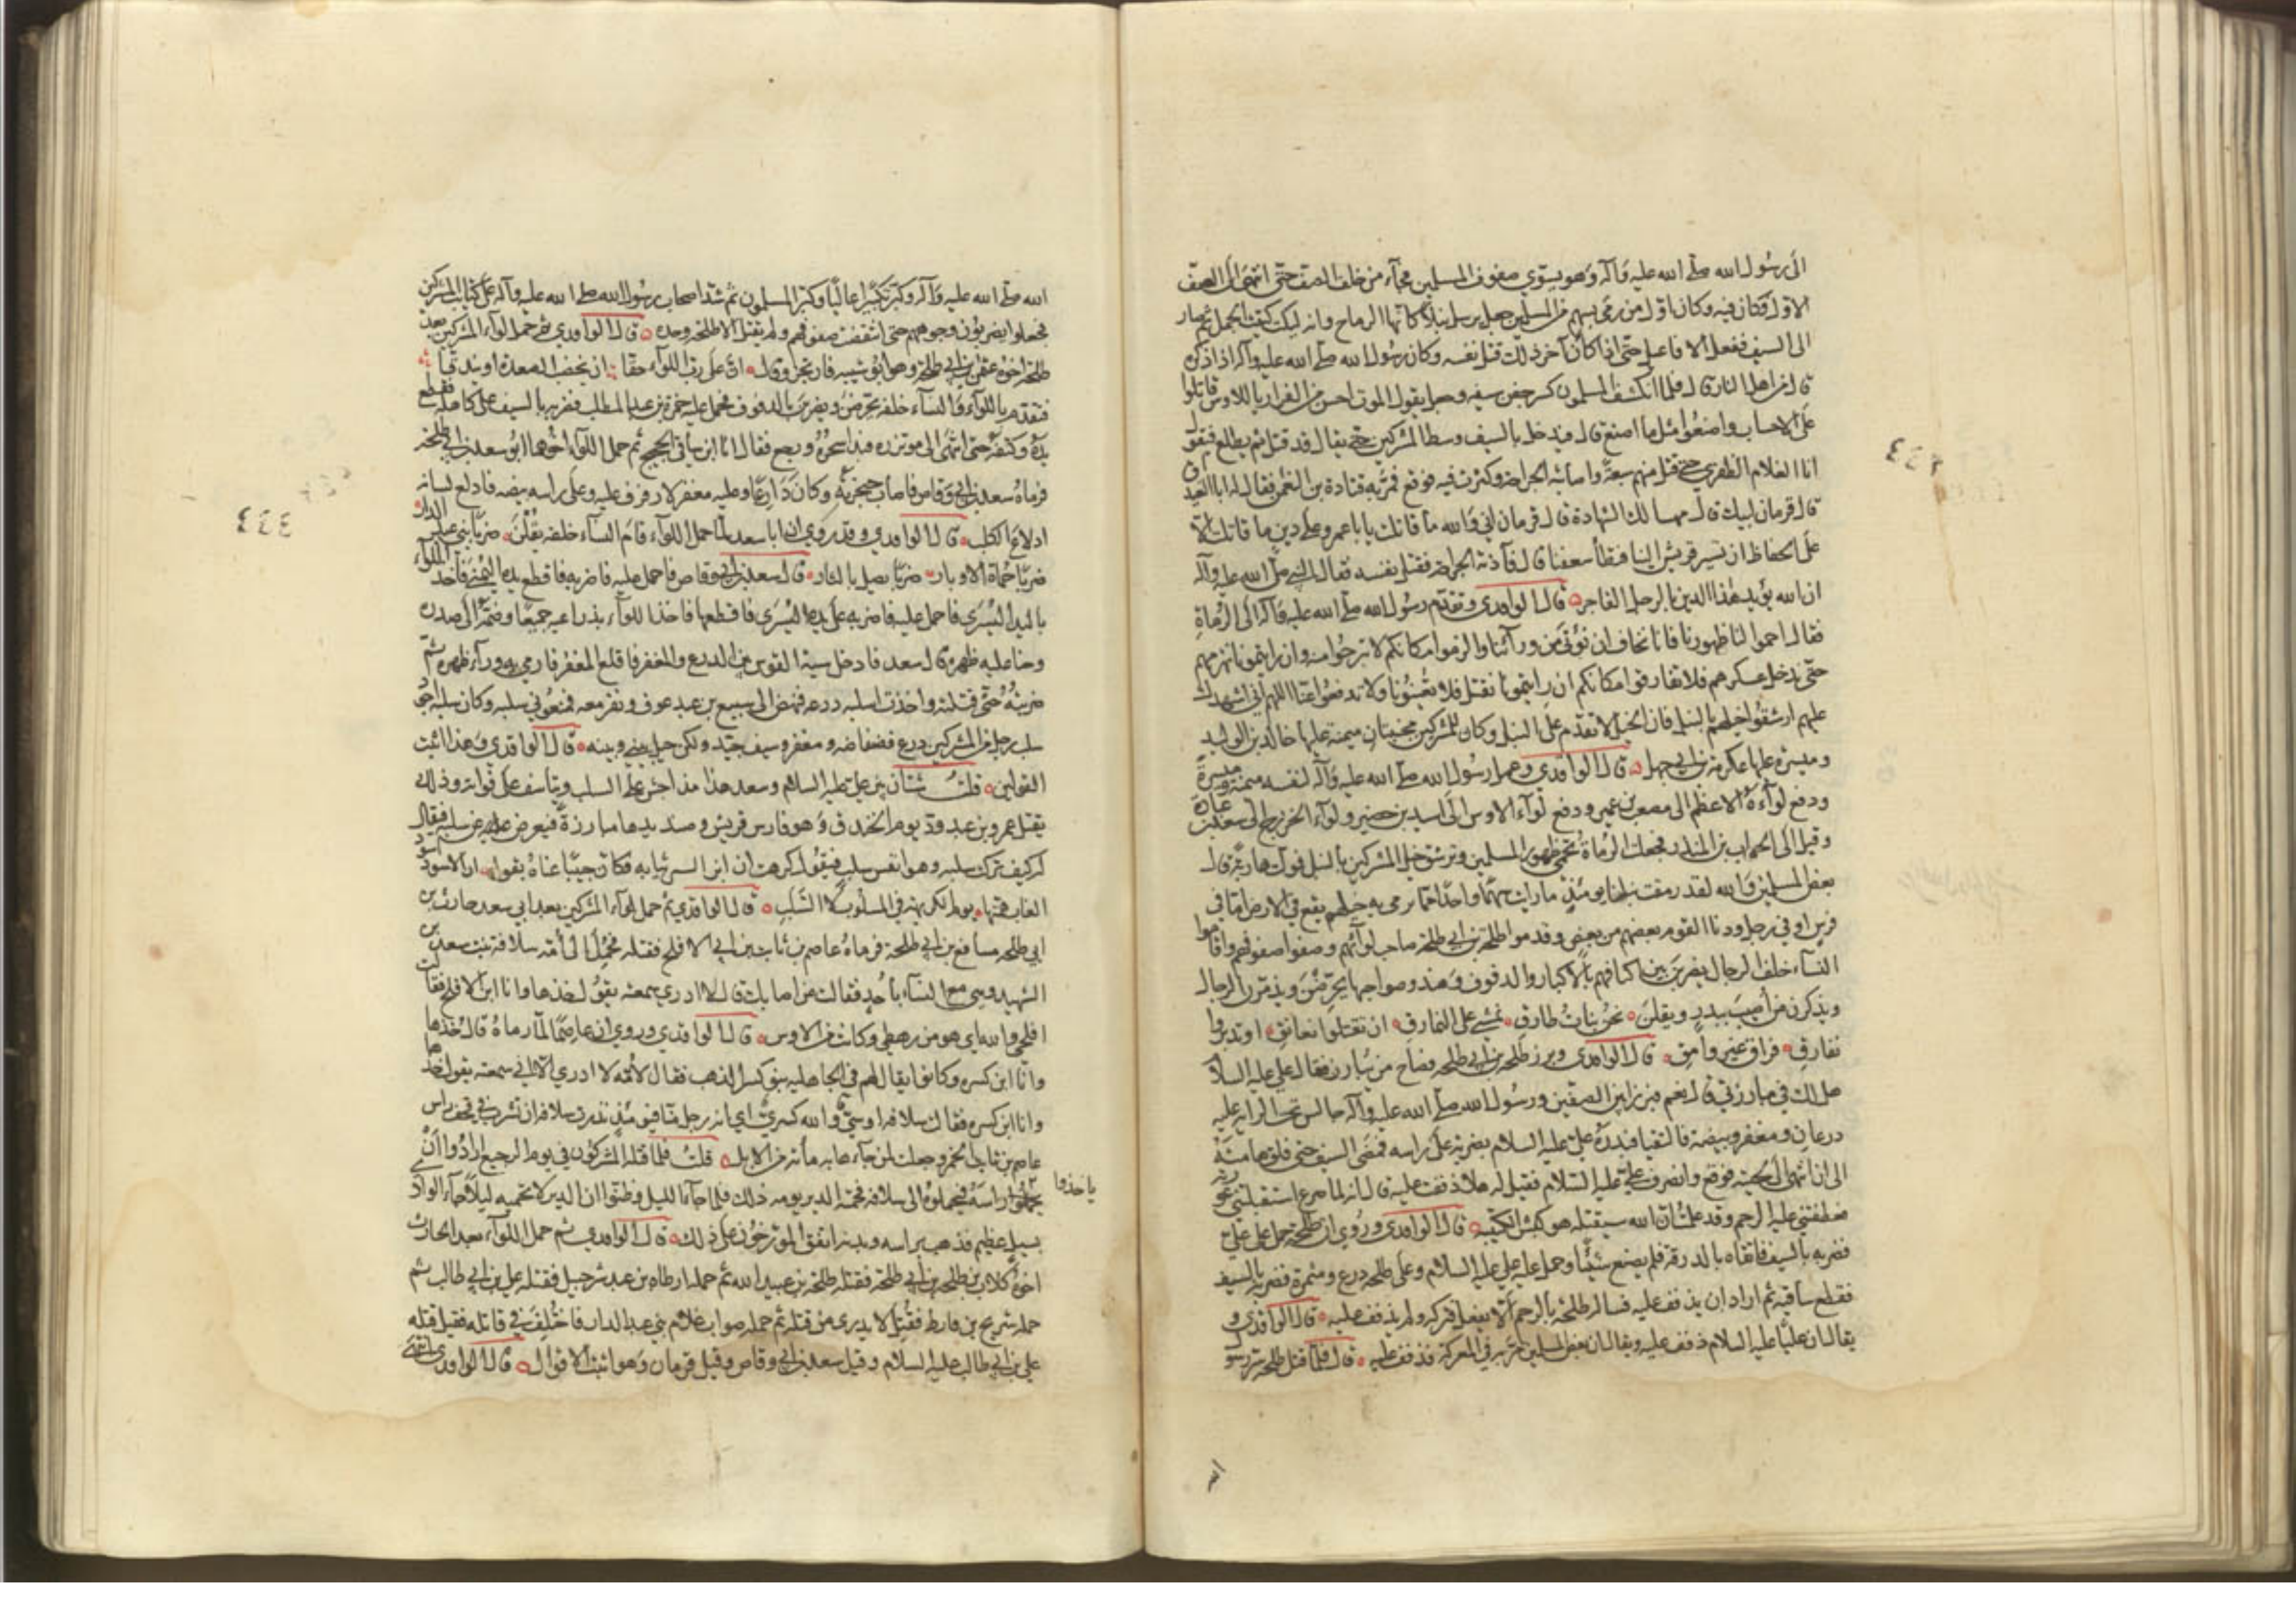 الى رسول الله صلى الله عليه وآله وهو يسوّي صفوف المسلمين فجآء من خلف الصف حتى انتهى الى الصف
الاول فكان فيه وكان اوّل من رمى بسهم من المسلمين جعل يرسل نبلا كانها الرماح وانه ليكت كتيت الجمل ثم صار
الى السيف ففعل الافاعيل حتى اذا كان آخر ذلك قتل نفسه وكان رسول الله صلى الله عليه وآله اذا ذكره
قال من اهل النار قال فلما انكشف المسلمون كسر جفن سيفه وجعل يقول الموت احسن من الفرار يا للاوس قاتلوا
على الاحساب واصنعوا مثل ما اصنع قال فيدخل بالسيف وسط المشركين حتى يقال قد قتل ثم يطلع فيقول
انا الغلام الظفري حتى قتل منهم سبعة واصابته الجراحة وكثرت فيه فوقع فمرّ به قتادة بن النعمن فقال له ابا الغيداق
قال قزمان لبيك قال هنيئا لك الشهادة قال قزمان اني والله ما قاتلت يا با عمرو على دين ما قاتلت الّا
على الحفاظ ان تسير قريش الينا فتطأ سعفنا قال فآذته الجراحة فقتل نفسه فقال النبي صلى الله عليه وآله
ان الله يؤيد هذا الدين بالرجل الفاجر ۝ قال الواقدي وتقدم رسول الله صلى الله عليه وآله الى الرماة
فقال احموا لنا ظهورنا فانا نخاف ان نؤتى من ورآئنا والزموا مكانكم لا تبرحوا منه وان رايتمونا نهزمهم
حتى ندخل عسكرهم فلا تفارقوا مكانكم ان رايتمونا نقتل فلا تغيثونا ولا تدفعوا عنا اللهم اني اشهدك
عليهم ارشقوا خيلهم بالنبل فان الخيل لا تقدم على النبل وكان للمشركين مجنبتان ميمنة عليها خالد بن الوليد
وميسرة عليها عكرمة بن ابي جهل ۝ قال الواقدي وعمل رسول الله صلى الله عليه وآله لنفسه ميمنة وميسرة
ودفع لوآءه الاعظم الى مصعب بن عمير ودفع لوآء الاوس الى اسيد بن حضير ولوآء الخزرج الى سعد بن عبادة
وقيل الى الحباب بن المنذر فجعلت الرماة تحمي ظهور المسلمين وترشق خيل المشركين بالنبل فولت هاربة قال
بعض المسلمين والله لقد رمقت نبلنا يومئذ ما رايت سهما واحدا مما يرمى به خيلهم يقع في الارض اما في
فرس او في رجل ودنا القوم بعضهم من بعض وقدموا طلحة بن ابي طلحة صاحب لوآئهم وصفوا صفوفهم واقاموا
النسآء خلف الرجال يضربن بين اكتافهم بالاكبار والدفوف وهند وصواحبها يحرضن ويذمرن الرجال
ويذكرن من اصيب ببدر ويقلن ۝ نحن بنات طارق ۝ نمشي على النمارق ۝ ان تقبلوا نعانق ۝ او تدبروا
نفارق ۝ فراق غير وامق ۝ قال الواقدي وبرز طلحة بن ابي طلحة فصاح من يبارز فقال علي عليه السلام
هل لك في مبارزتي قال نعم فبرزا بين الصفين ورسول الله صلى الله عليه وآله جالس تحت الراية عليه
درعان ومغفر وبيضة فالتقيا فبدره علي عليه السلام بضربة على راسه فمضى السيف حتى فلق هامته
الى ان انتهى الى لحيته فوقع وانصرف علي عليه السلام فقيل له هلا ذففت عليه قال انه لما صرع استقبلتني عورته
فعطفتني عليه الرحم وقد علمت ان الله سيقتله هو كبش الكتيبة ۝ قال الواقدي وروي ان طلحة حمل على علي
فضربه بالسيف فاتقاه بالدرقة فلم يصنع شيئا وحمل عليه علي عليه السلام وعلى طلحة درع ومشمرة فضربه بالسيف
فقطع ساقيه ثم اراد ان يذفف عليه فساله طلحة بالرحم الّا يفعل فتركه ولم يذفف عليه ۝ قال الواقدي و
يقال ان عليا عليه السلام ذفف عليه ويقال ان بعض المسلمين مرّ به في المعركة فذفف عليه ۝ قال فلما قتل طلحة سر رسول
الله
٤٤٣
الله صلى الله عليه وآله وكبّر تكبيرا عاليا وكبّر المسلمون ثم شد اصحاب رسول الله صلى الله عليه وآله على كتائب المشركين
فجعلوا يضربون وجوههم حتى انتقضت صفوفهم ولم يقتل الا طلحة وحده ۝ قال الواقدي ثم حمل لوآء المشركين بعد
طلحة اخوه عثمن بن ابي طلحة وهو ابو شيبة فارتجز وقال ۝ ان على رب اللوآء حقا ۝ ان تخضب الصعدة او تندقا ۝
فتقدم باللوآء والنسآء خلفه يحرضن ويضربن بالدفوف فحمل عليه حمزة بن عبد المطلب فضربه بالسيف على كاهله فقطع
يده وكتفه حتى انتهى الى مؤتزره فبدا سحره ورجع فقال انا ابن ساقي الحجيج ثم حمل اللوآء اخوهما ابو سعد بن ابي طلحة
فرماه سعد بن ابي وقاص فاصاب حنجرته وكان دارعا وعليه مغفر لا رفرف عليه وعلى راسه بيضة فادلع لسانه
ادلاع الكلب ۝ قال الواقدي وقد روي ان ابا سعد لما حمل اللوآء قام النسآء خلفه يقلن ۝ ضربا بني عبد الدار
ضربا حماة الادبار ۝ ضربا بكل بتار ۝ قال سعد بن ابي وقاص فاحمل عليه فاضربه فاقطع يده اليمنى فاخذ اللوآء
باليد اليسرى فاحمل عليه فاضربه على يده اليسرى فاقطعها فاخذ اللوآء بذراعيه جميعا وضمه الى صدره
وحنا عليه ظهره قال سعد فادخل سية القوس بين الدرع والمغفر فاقلع المغفر فارمي به ورآء ظهره ثم
ضربته حتى قتلته واخذت اسلبه درعه فنهض الى سبيع بن عبد عوف ونفر معه فمنعوني سلبه وكان سلبه اجود
سلب رجل من المشركين درع فضفاضة ومغفر وسيف جيد ولكن حيل بيني وبينه ۝ قال الواقدي وهذا اثبت
القولين ۝ قلت شتان بين علي عليه السلام وسعد هذا يجاحش على السلب ويتأسف على فواته وذلك
يقتل عمرو بن عبد ود يوم الخندق وهو فارس قريش وصنديدها مبارزة فيعرض عن سلبه فيقال
له كيف تركت سلبه وهو انفس سلب فيقول كرهت ان ابز السبي ثيابه فكان حبيبا عناه بقوله ۝ ان الاسود اسود
الغاب همتها ۝ يوم الكريهة في المسلوب لا السلب ۝ قال الواقدي ثم حمل لوآء المشركين بعد ابي سعد حارث بن
ابي طلحة مسافع بن ابي طلحة فرماه عاصم بن ثابت بن ابي الاقلح فقتله فحمل الى امه سلافة بنت سعد بن
الشهيد وهي مع النسآء باحد فقالت من اصابك قال لا ادري سمعته يقول خذها وانا ابن الاقلح فقالت
اقلحي والله اي هو من رهطي وكانت من الاوس ۝ قال الواقدي وروي ان عاصما لما رماه قال خذها
وانا ابن كسرة وكانوا يقال لهم في الجاهلية بنو كسر الذهب فقال لامه لا ادري الا اني سمعته يقول خذها
وانا ابن كسرة فقالت سلافة اوسي والله كسري اي انه رجل منا فيومئذ نذرت سلافة ان تشرب في قحف راس
عاصم بن ثابت الخمر وجعلت لمن جآء به مائة من الابل ۝ قلت فلما قتله المشركون في يوم الرجيع ارادوا ان
ياخذوا
يحملوا راسه فيحملوه الى سلافة فحمته الدبر يومه ذلك فلما جآء الليل وظنوا ان الدبر لا تحميه ليلا جآء الوادي
بسيل عظيم فذهب براسه وبدنه اتفق المؤرخون على ذلك ۝ قال الواقدي ثم حمل اللوآء بعد الحارث
اخوه كلاب بن طلحة بن ابي طلحة فقتله طلحة بن عبيد الله ثم حمله ارطاة بن عبد شرحبيل فقتله علي بن ابي طالب ثم
حمله شريح بن قارظ فقتل لا يدرى من قتله ثم حمله صواب غلام بني عبد الدار فاختلف في قاتله فقيل قتله
علي بن ابي طالب عليه السلام وقيل سعد بن ابي وقاص وقيل قزمان وهو اثبت الاقوال ۝ قال الواقدي انتهى
٤٤٤